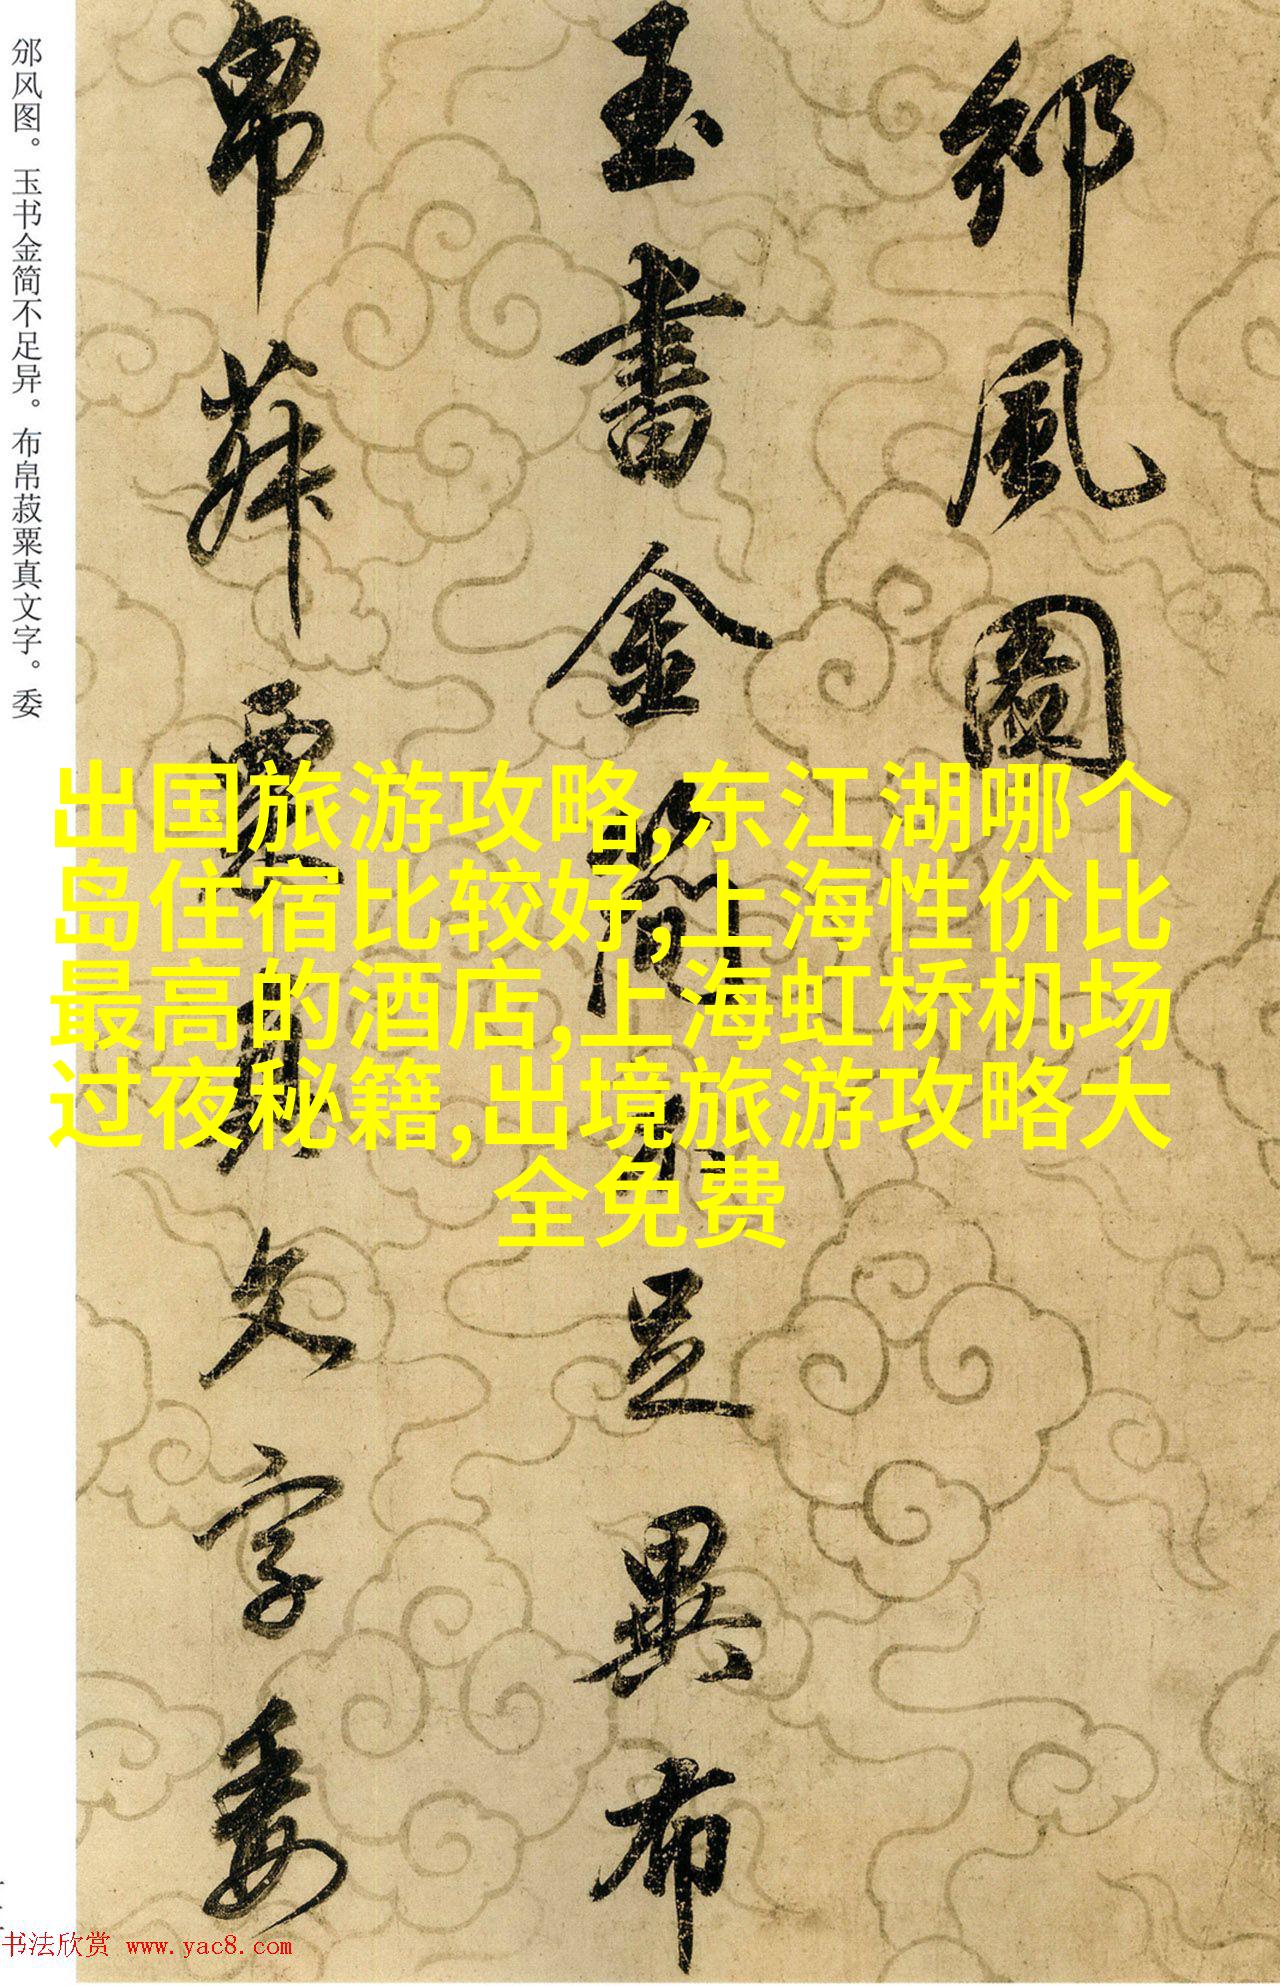 邠风图。玉书金简不足异。布帛菽粟真文字。委
邠風圖
玉書金簡不足異布
帛菽粟真文字委
出国旅游攻略,东江湖哪个
岛住宿比较好,上海性价比
最高的酒店,上海虹桥机场
过夜秘籍,出境旅游攻略大
全免费
书法欣赏 www.yac8.com